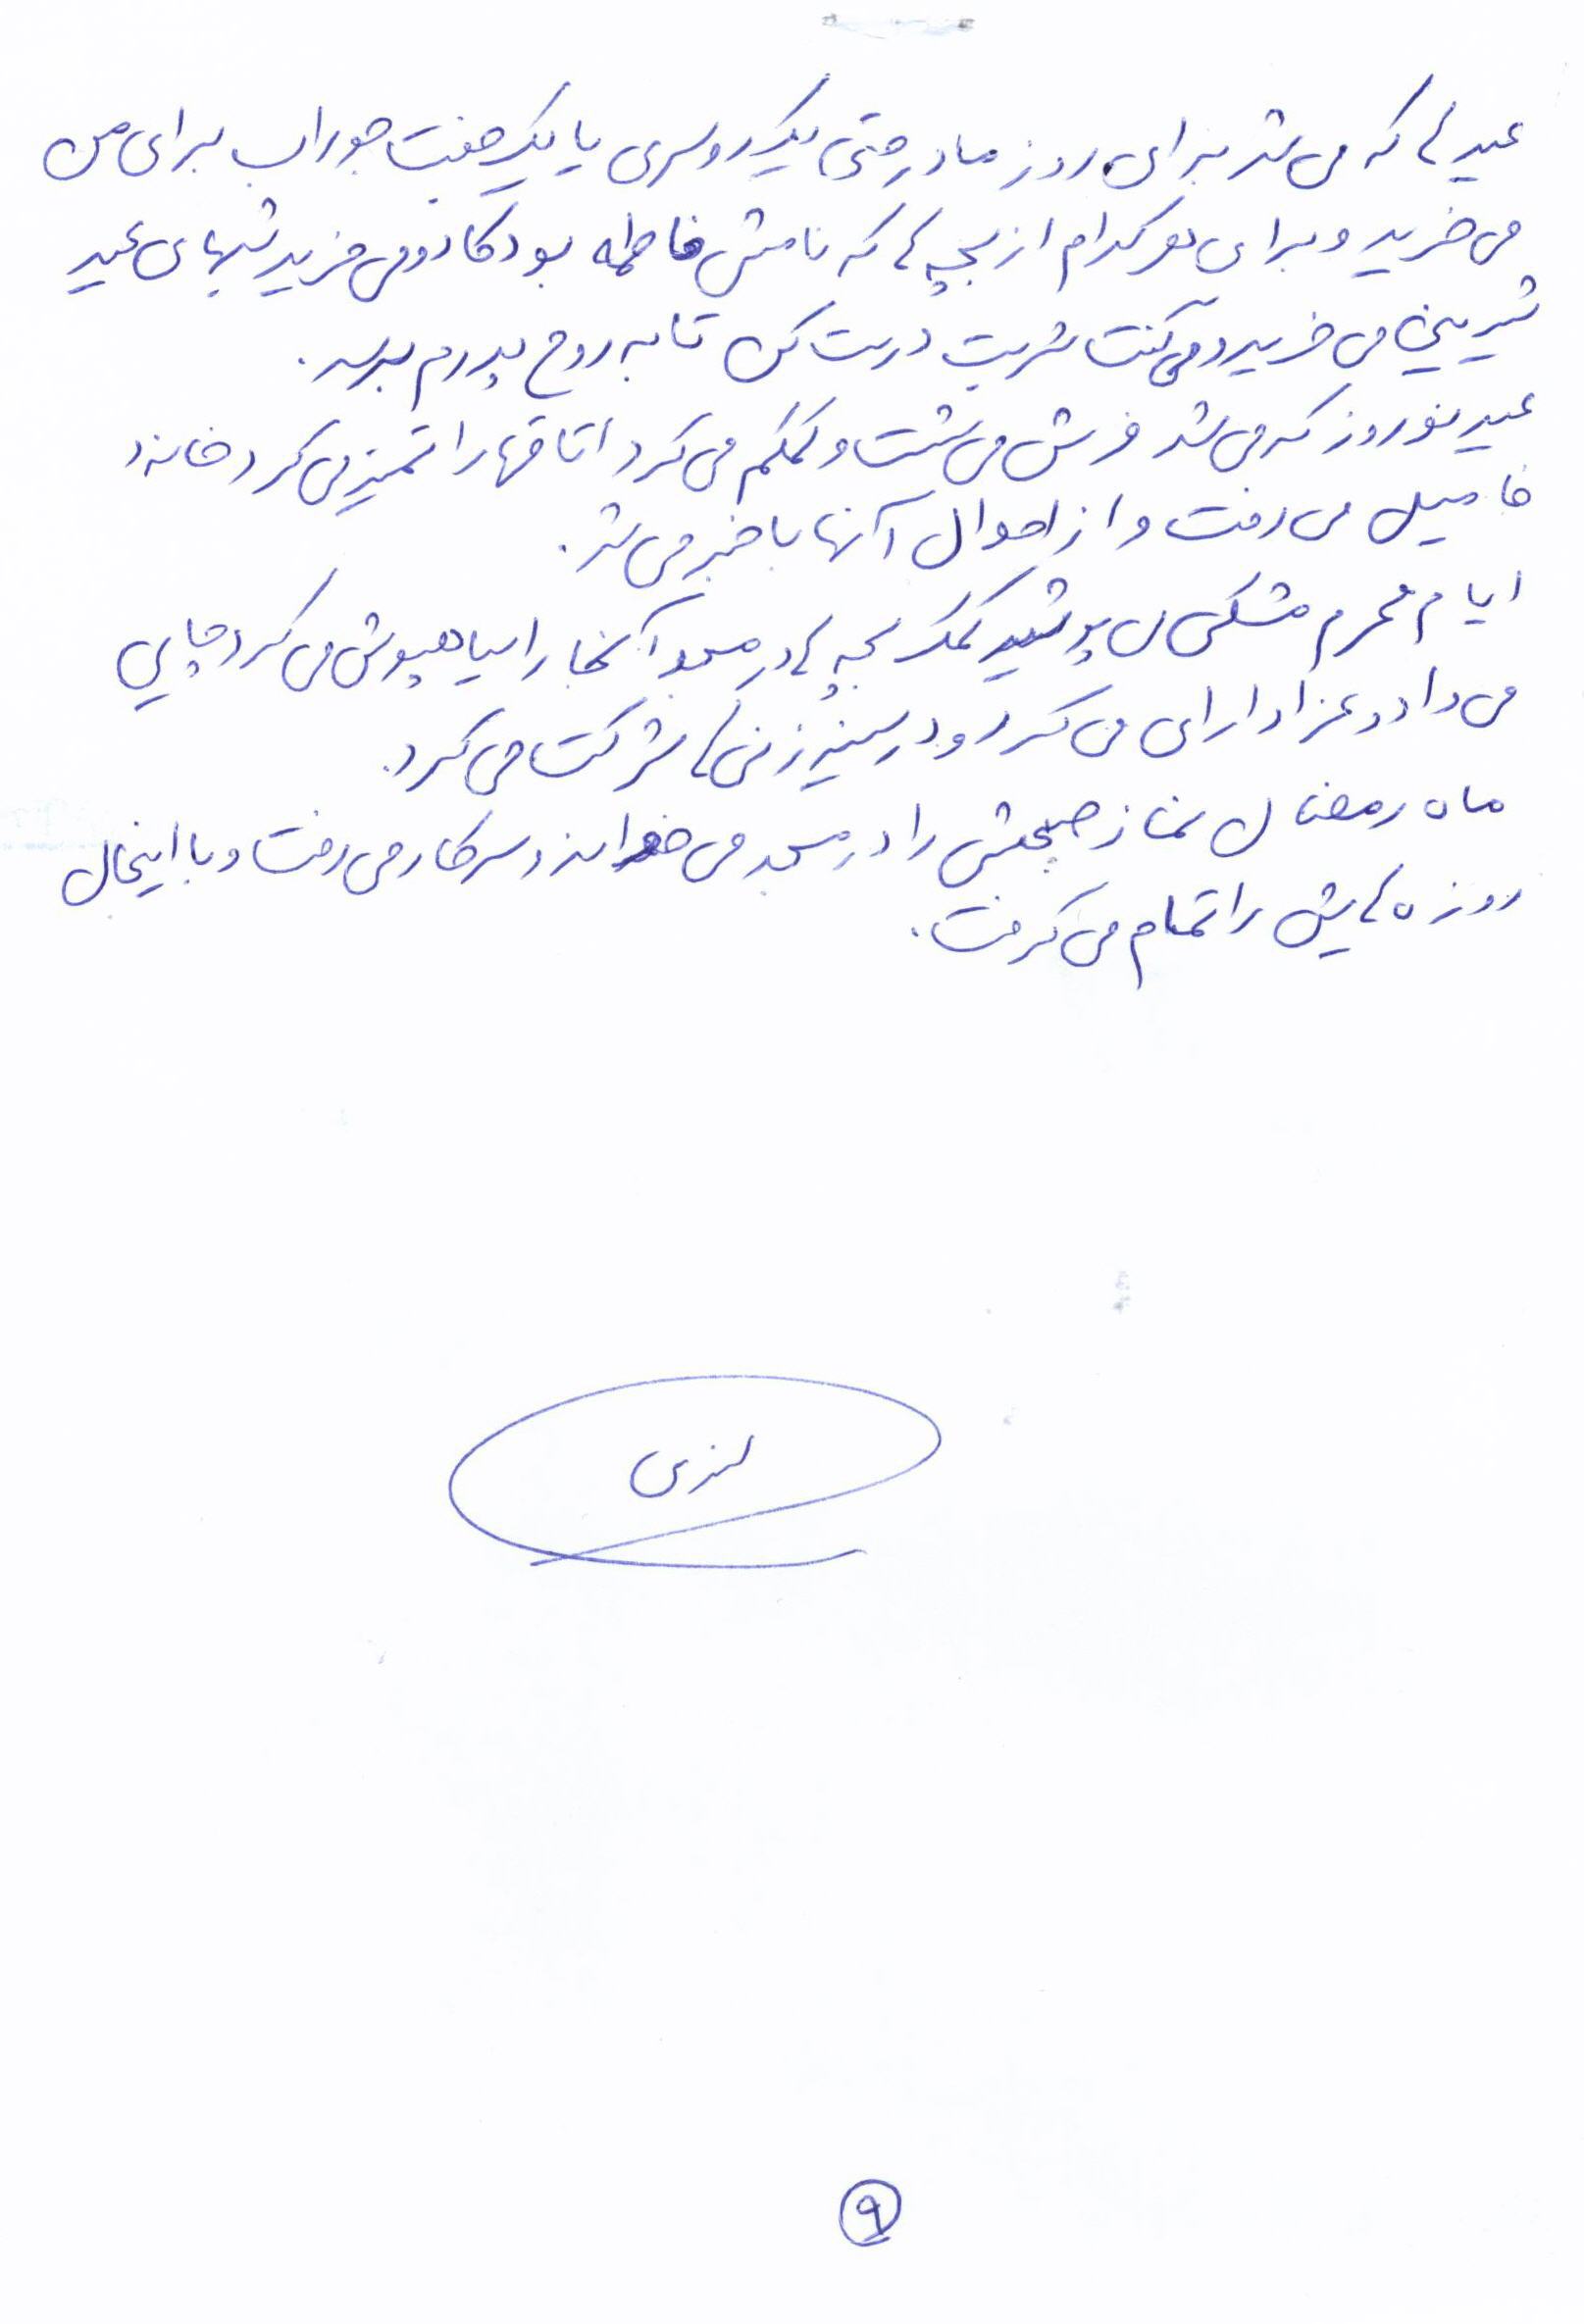 عید ها که می شد برای روز مادر حتی یک روسری یا یک جفت جوراب برای من
می خرید و برای هر کدام از بچه ها که نامش فاطمه بود کادو می خرید شبهای عید
شیرینی می خرید و می گفت شربت درست کن تا به روح پدرم برسد.
عید نوروز که می شد فرش می شست و کمکم می کرد اتاقها را تمیز می کرد خانه
فامیل می رفت و از احوال آنها با خبر می شد.
ایام محرم مشکی می پوشید کمک بچه ها در مسجد آنجا را سیاهپوش می کرد چایی
می داد و عزاداری می کرد و در سینه زنی ها شرکت می کرد.
ماه رمضان نماز صبحش را در مسجد می خواند و سر کار می رفت و با اینحال
روزه هایش را تمام می گرفت.
۹